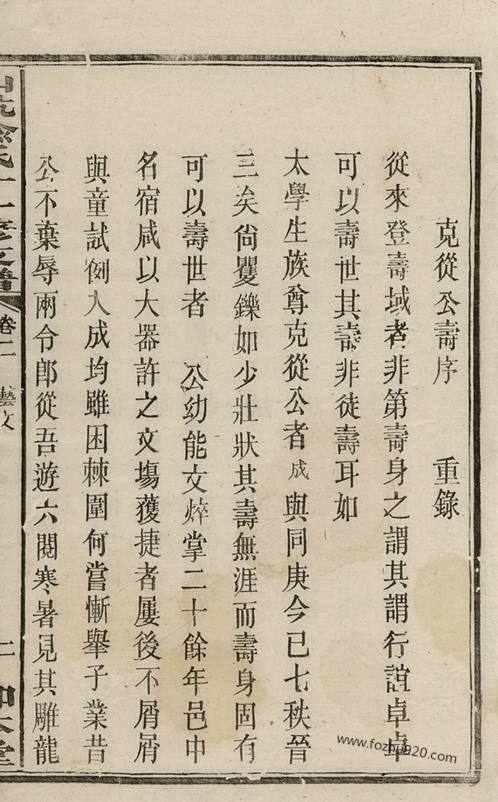 克從公壽序 重錄
從來登壽域者非第壽身之謂其謂行誼卓卓
可以壽世其壽非徒壽耳如
太學生族尊克從公者成與同庚今已七秩晉
三矣尙矍鑠如少壯狀其壽無涯而壽身固有
可以壽世者 公幼能文焠掌二十餘年邑中
名宿咸以大器許之文塲獲捷者屢後不屑屑
與童試例入成均雖困棘圍何嘗慚舉子業昔
公不棄辱兩令郎從吾遊六閱寒暑見其雕龍
卷二 藝文
www.fozhu920.com